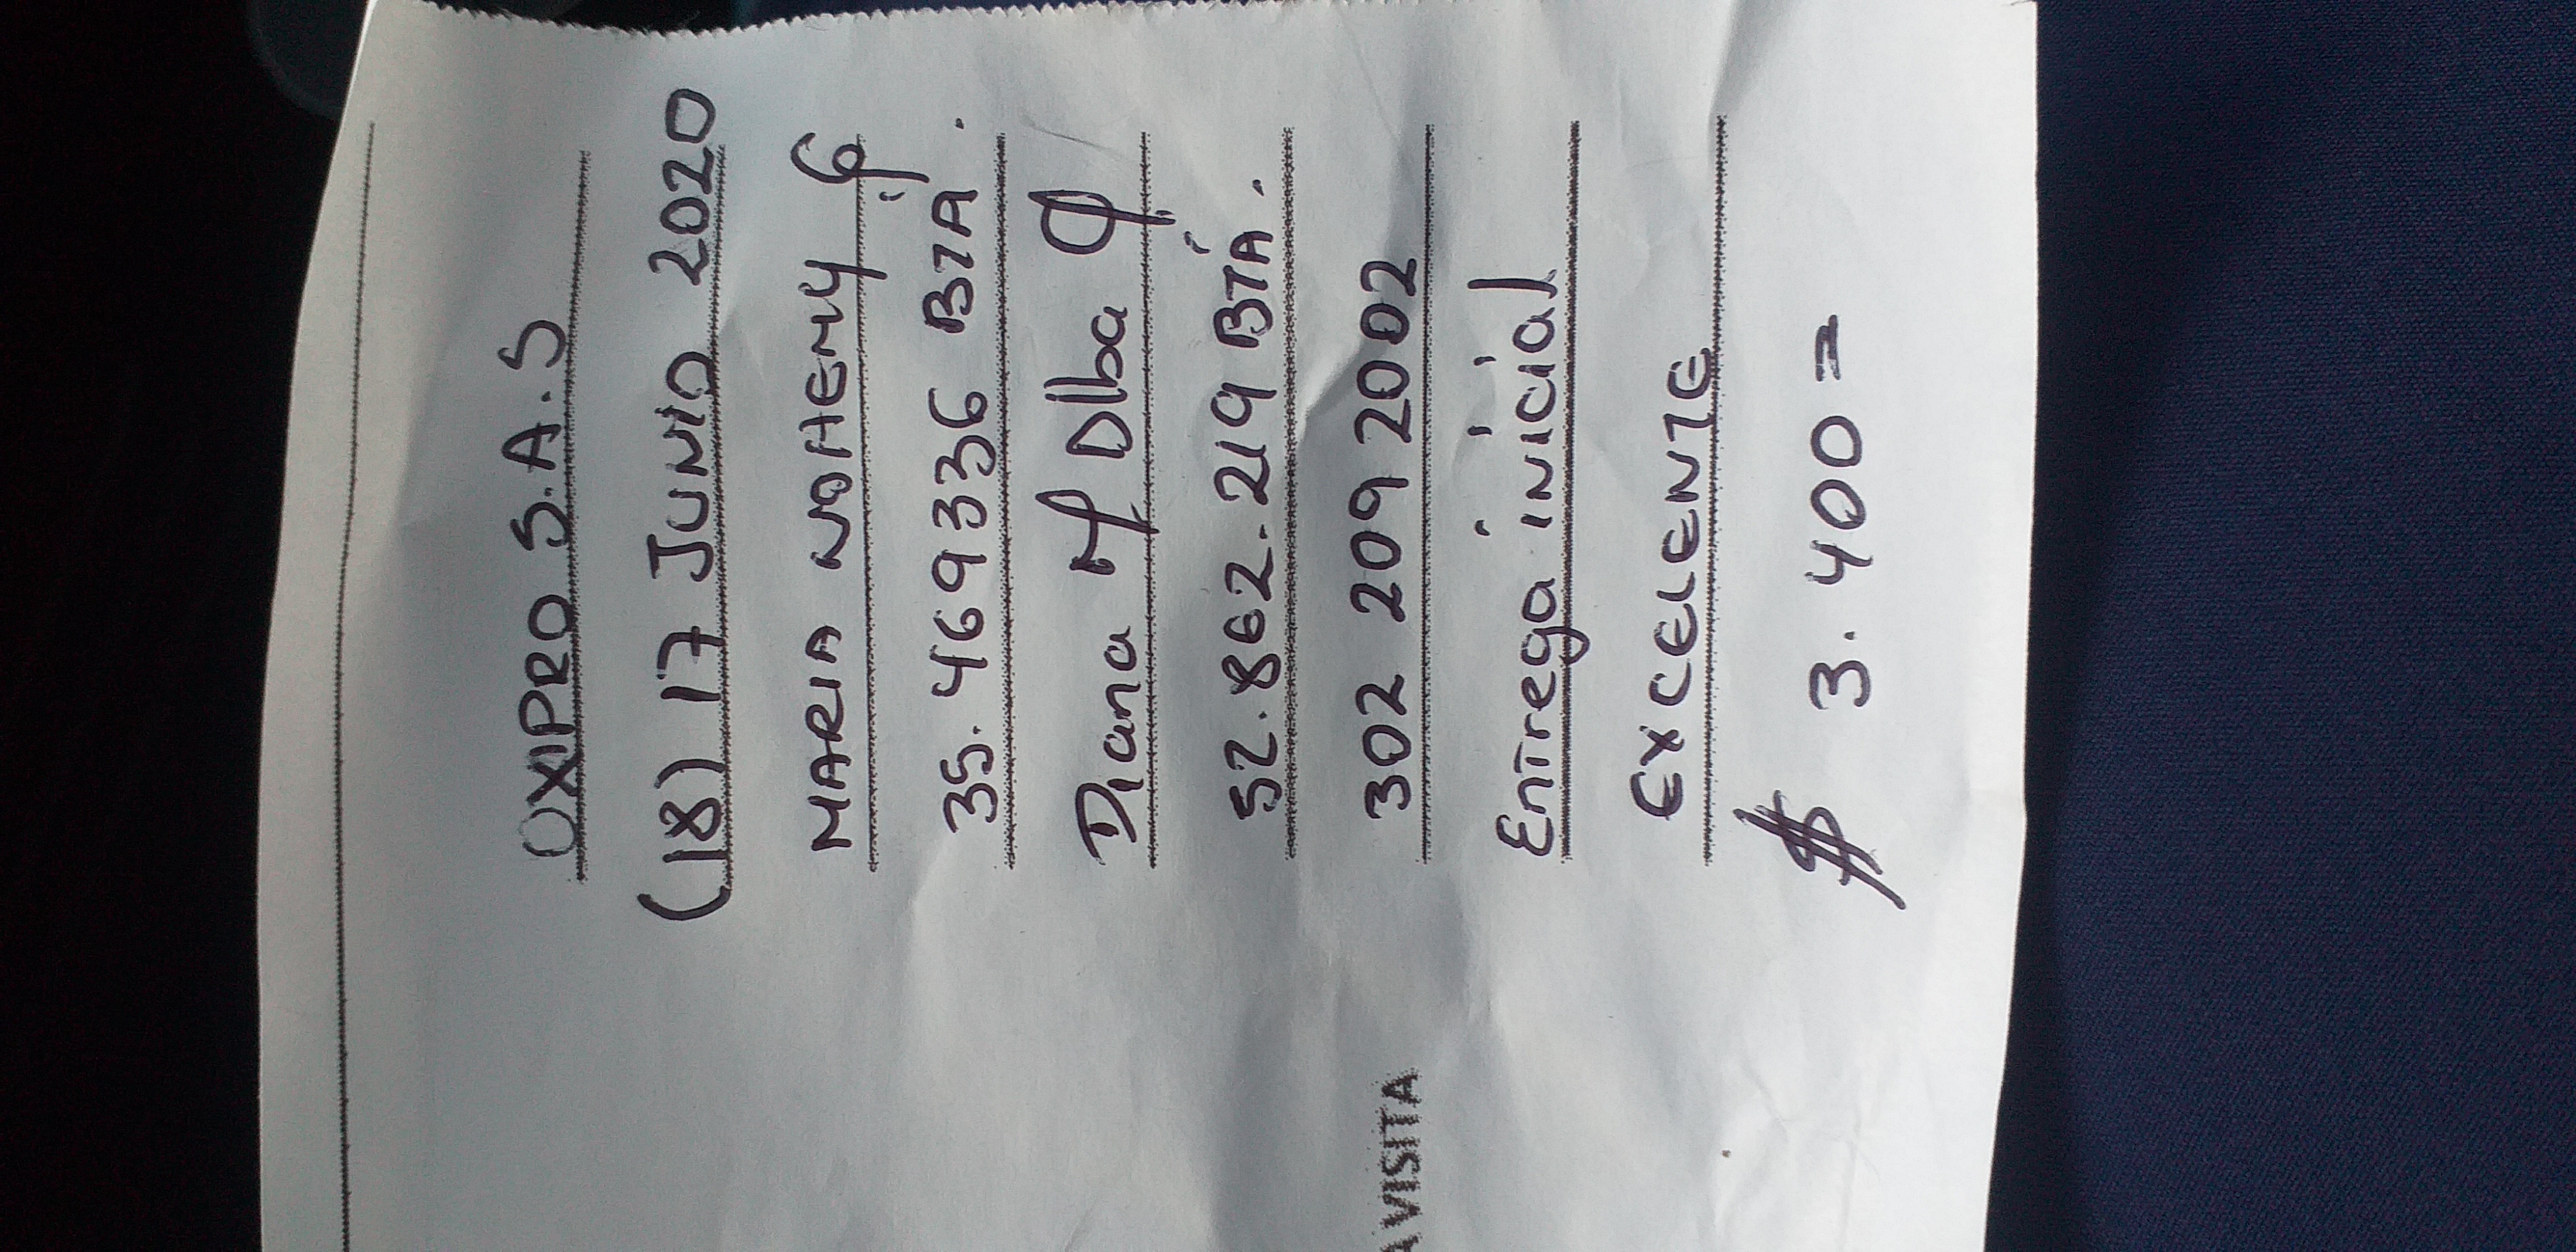 OXIPRO S.A.S
(18) 17 JUNIO 2020
MARIA NOHEMY G
35.469336 BTA.
Diana M Dlba
52.862.219 BTA.
302 209 2002
A VISITA
Entrega inicial
EXCELENTE
$ 3.400=